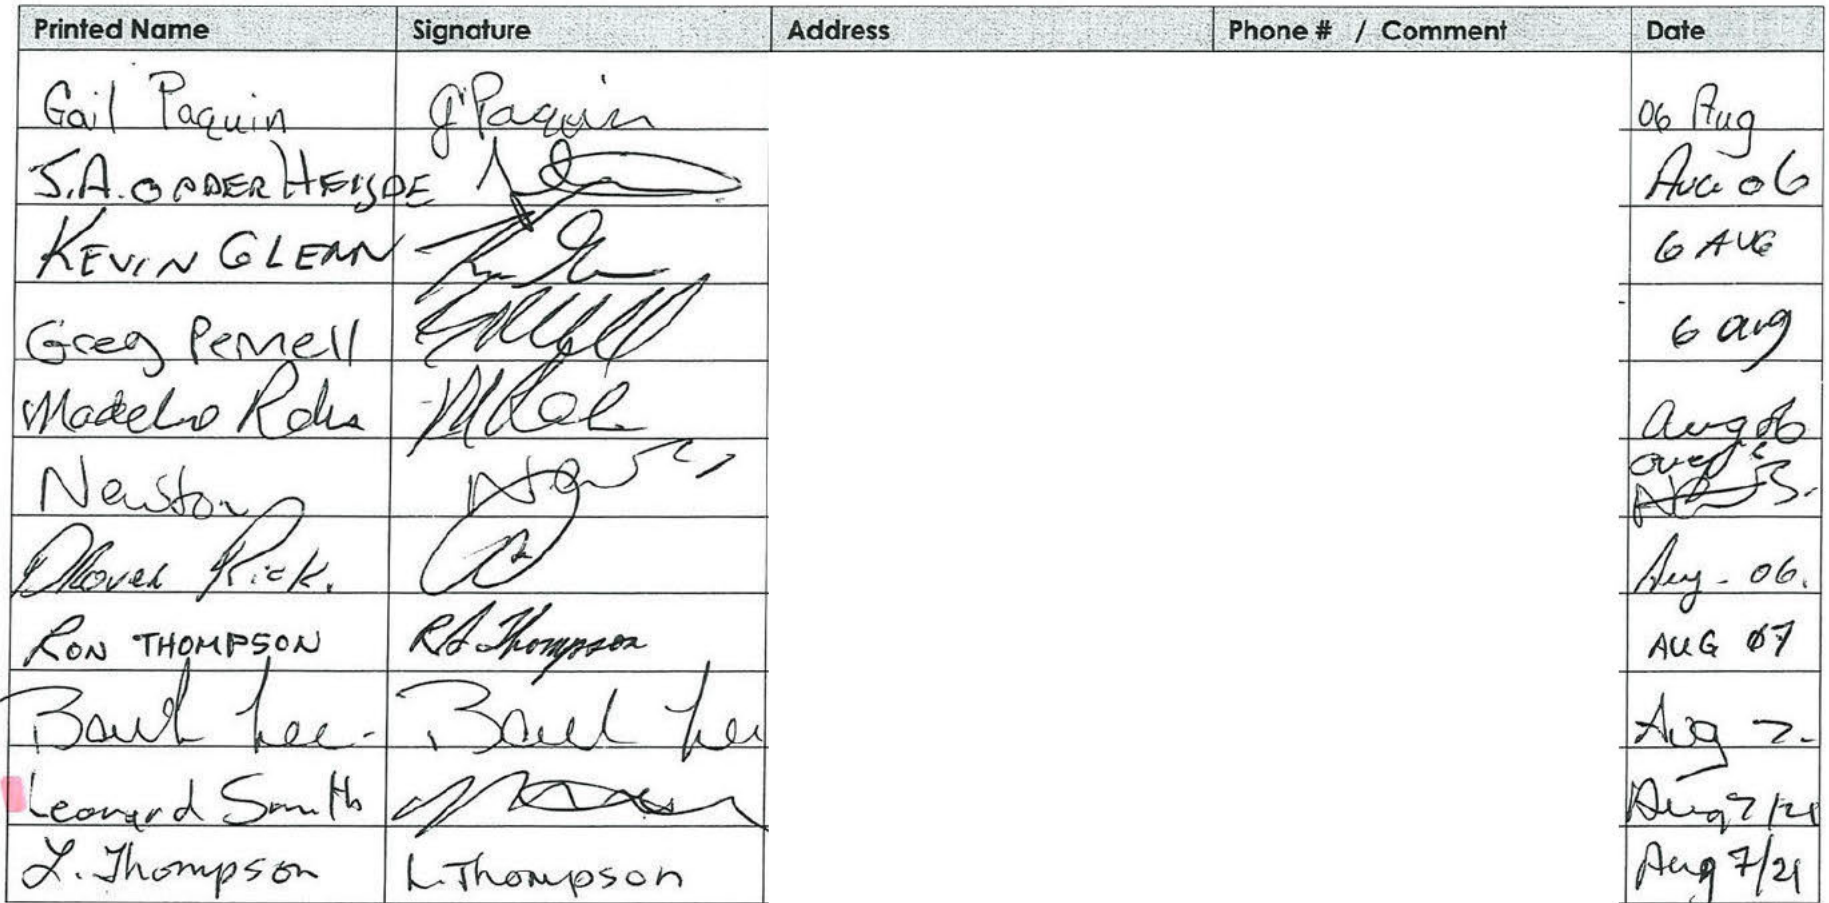 Printed Name Signature Address Phone # / Comment Date
Gail Paquin G Paquin 06 Aug
J.A. OPDER HEIJDE Aug 06
KEVIN GLENN 6 AUG
Greg Pennell 6 aug
Aug 06
Newton
Rick. Aug - 06.
RON THOMPSON RA Thompson AUG 07
Lee Lee Aug 7.
Leonard Smith Aug 7/21
L. Thompson L. Thompson Aug 7/21